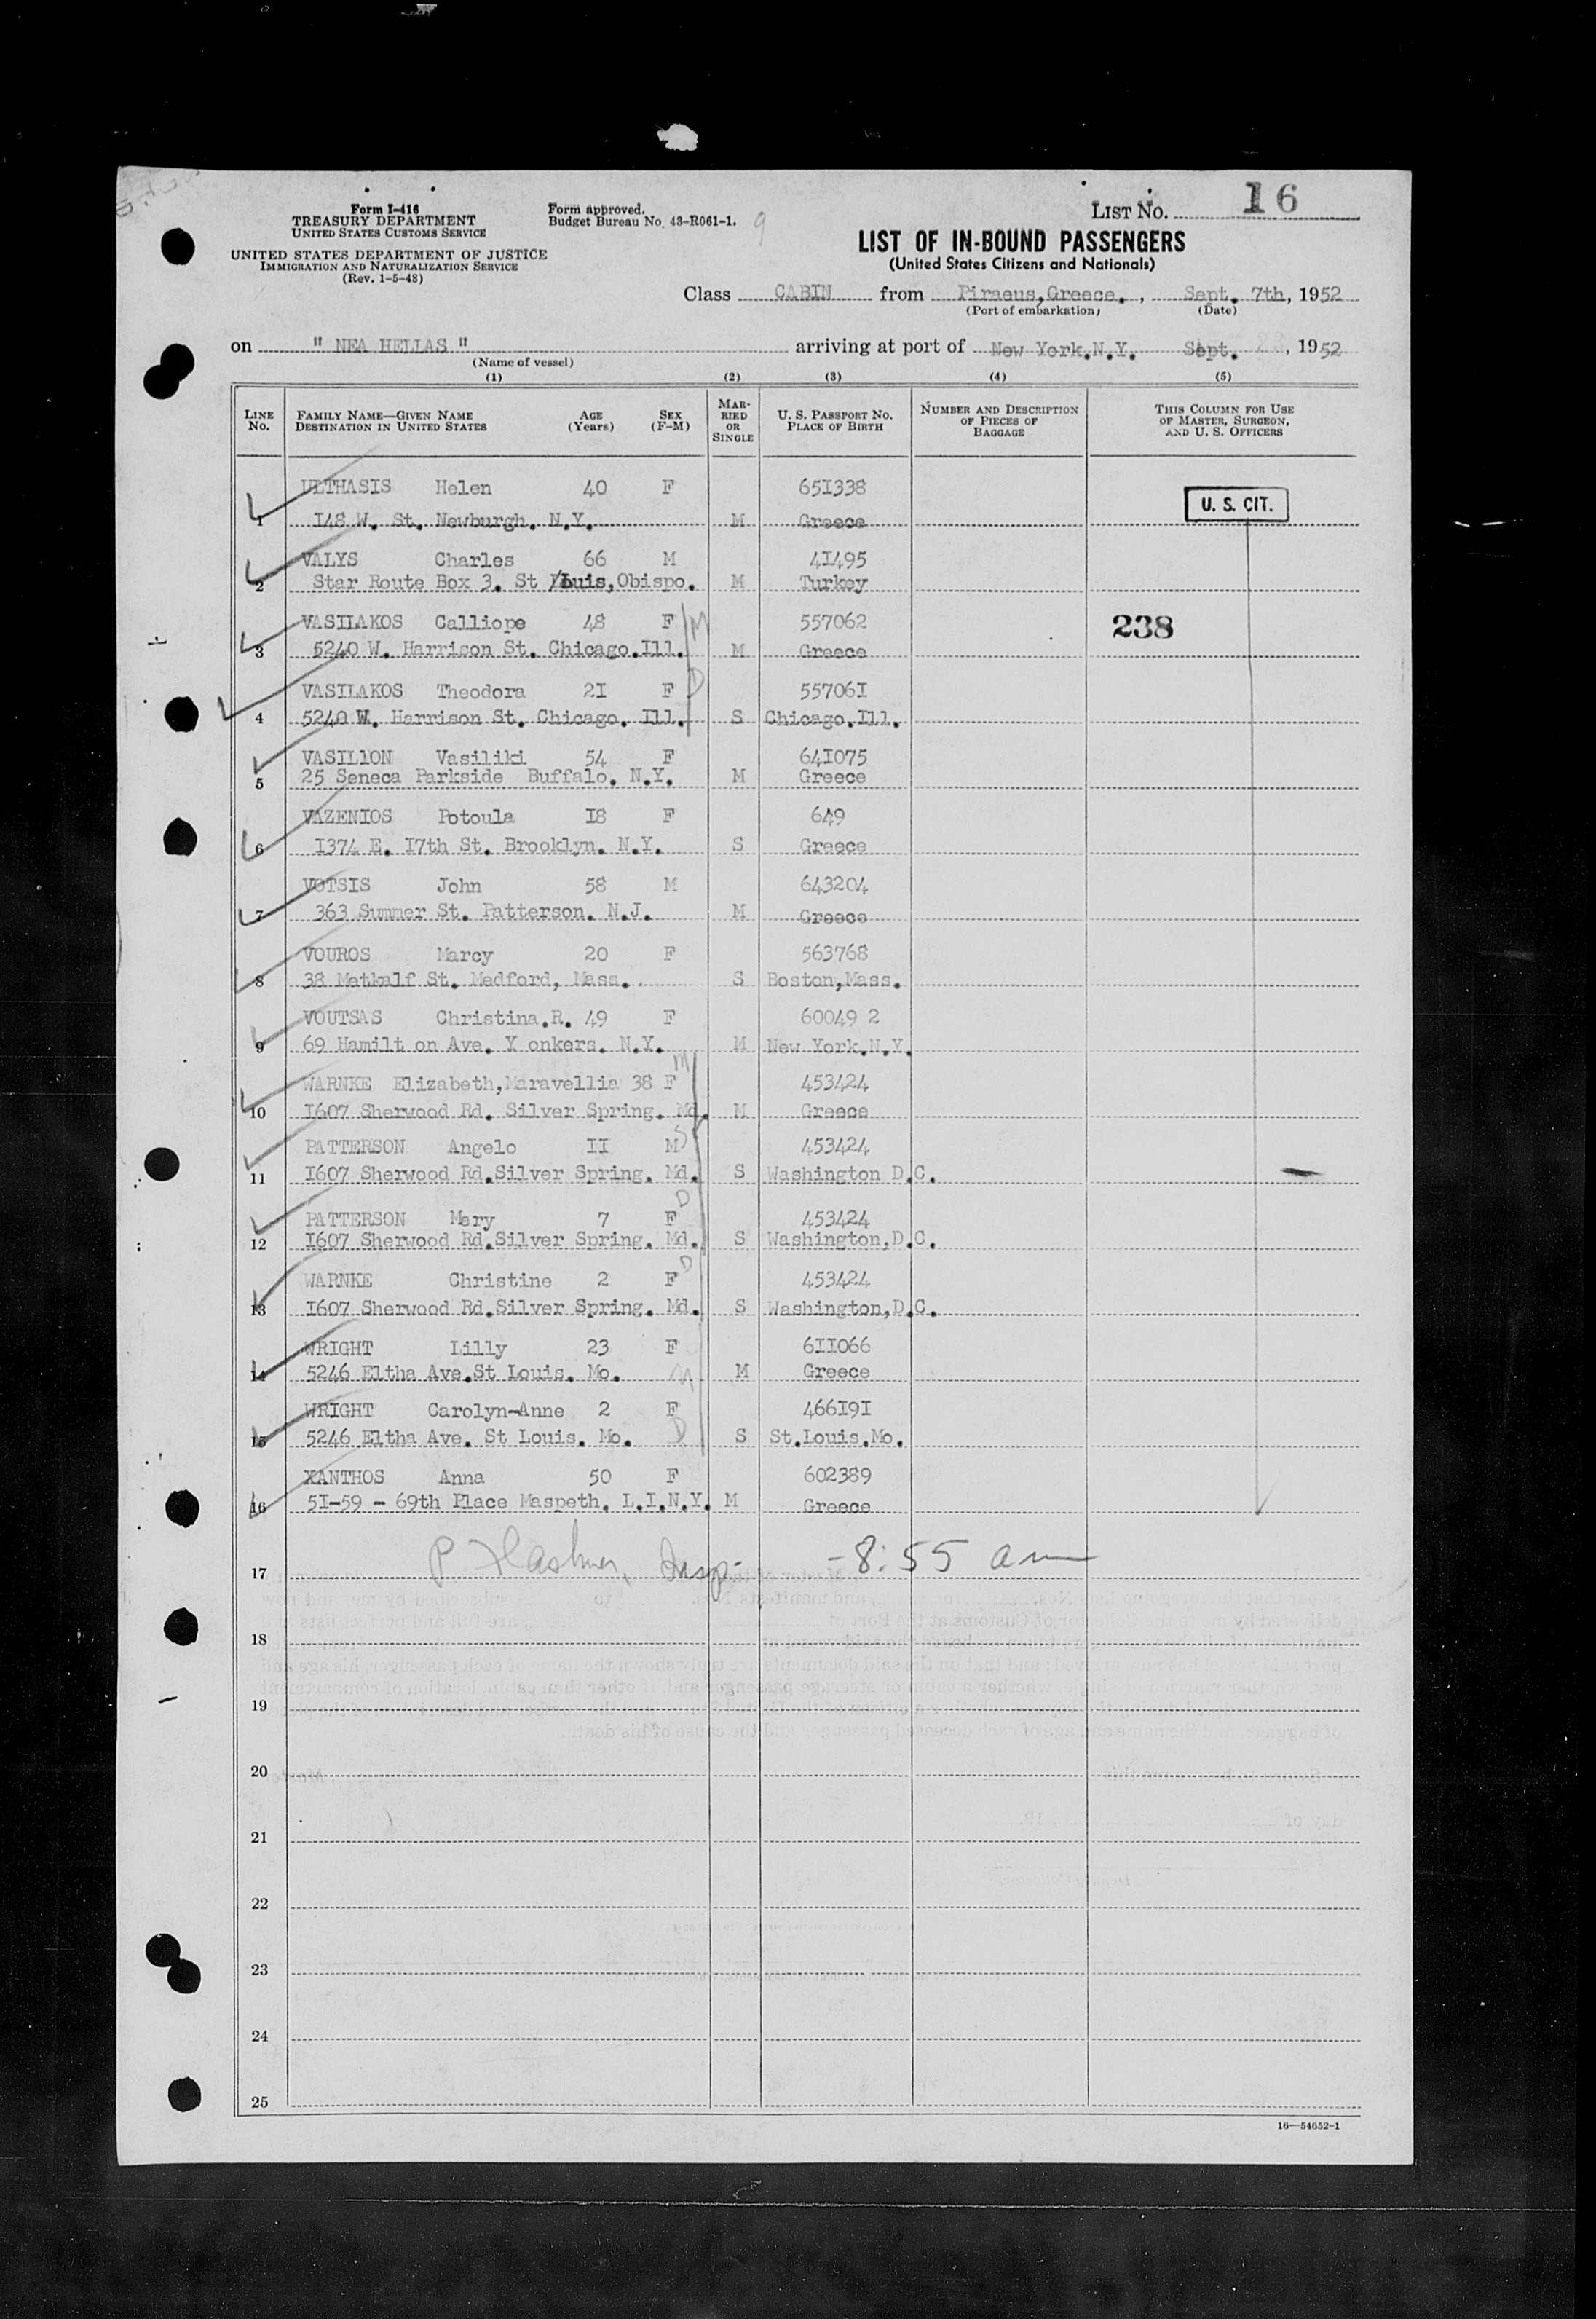 Form I-416
TREASURY DEPARTMENT
UNITED STATES CUSTOMS SERVICE
UNITED STATES DEPARTMENT OF JUSTICE
IMMIGRATION AND NATURALIZATION SERVICE
(Rev. 1-5-48)
Form approved.
Budget Bureau No. 43-R061-1.
9
LIST NO. 16
LIST OF IN-BOUND PASSENGERS
(United States Citizens and Nationals)
Class CABIN from Piraeus,Greece. , Sept. 7th, 1952
(Port of embarkation) (Date)
on " NEA HELLAS " arriving at port of New York.N.Y. Sept. , 1952
(Name of vessel)
(1) (2) (3) (4) (5)
LINE NO. FAMILY NAME—GIVEN NAME DESTINATION IN UNITED STATES AGE (Years) SEX (F-M) MARRIED OR SINGLE U. S. PASSPORT NO. PLACE OF BIRTH NUMBER AND DESCRIPTION OF PIECES OF BAGGAGE THIS COLUMN FOR USE OF MASTER, SURGEON, AND U. S. OFFICERS
ULTHASIS Helen 40 F 651338
U. S. CIT.
1 148 W. St. Newburgh. N.Y. M Greece
VALYS Charles 66 M 41495
2 Star Route Box 3. St Luis,Obispo. M Turkey
VASILAKOS Calliope 48 F M 557062 238
3 5240 W. Harrison St. Chicago.Ill. M Greece
VASILAKOS Theodora 21 F D 557061
4 5240 W. Harrison St. Chicago. Ill. S Chicago.Ill.
VASILION Vasiliki 54 F 641075
5 25 Seneca Parkside Buffalo. N.Y. M Greece
VAZENIOS Potoula 18 F 649
6 1374 E. 17th St. Brooklyn. N.Y. S Greece
VOTSIS John 58 M 643204
7 363 Summer St. Patterson. N.J. M Greece
VOUROS Marcy 20 F 563768
8 38 Metkalf St. Medford, Mass. S Boston,Mass.
VOUTSAS Christina.R. 49 F 60049 2
9 69 Hamilt on Ave. Y onkers. N.Y. M New York.N.Y.
WARNKE Elizabeth,Maravellia 38 F M 453424
10 1607 Sherwood Rd. Silver Spring. Md. M Greece
PATTERSON Angelo 11 M S 453424
11 1607 Sherwood Rd.Silver Spring. Md. S Washington D.C.
PATTERSON Mary 7 F D 453424
12 1607 Sherwood Rd.Silver Spring. Md. S Washington,D.C.
WARNKE Christine 2 F D 453424
13 1607 Sherwood Rd.Silver Spring. Md. S Washington,D.C.
WRIGHT Lilly 23 F 611066
14 5246 Eltha Ave.St Louis. Mo. M M Greece
WRIGHT Carolyn-Anne 2 F 466191
15 5246 Eltha Ave. St Louis. Mo. D S St.Louis.Mo.
XANTHOS Anna 50 F 602389
16 51-59 - 69th Place Maspeth. L.I.N.Y. M Greece
17 P. Insp- -8:55 am
18
19
20
21
22
23
24
25
16—54652-1